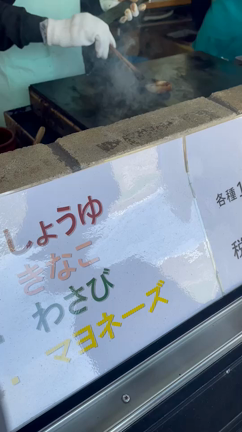 しょうゆ
きなこ
わさび
マヨネーズ
各種1
税